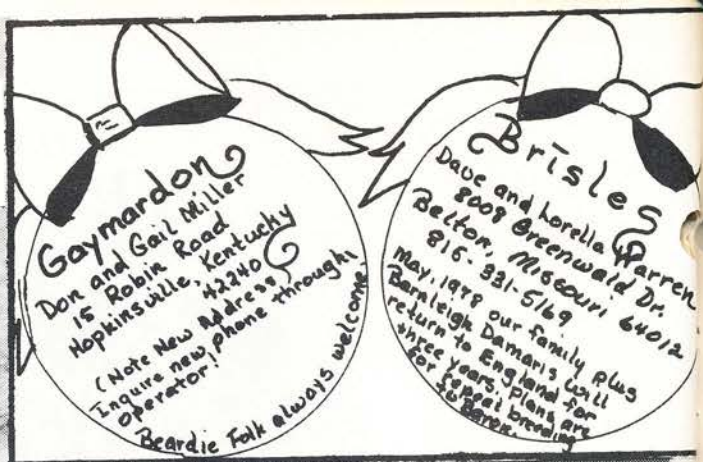 Gaymardon
Don and Gail Miller
15 Robin Road
Hopkinsville, Kentucky
42240
(Note New Address,
Inquire new phone through
operator!
Beardie Folk always welcome
Brisles
Dave and Lorella Warren
8008 Greenwald Dr.
Belton, Missouri 64012
816-331-5169
May, 1978 our family plus
Barnleigh Damaris will
return to England for
three years, plans are
for repeat breeding
to Baron.